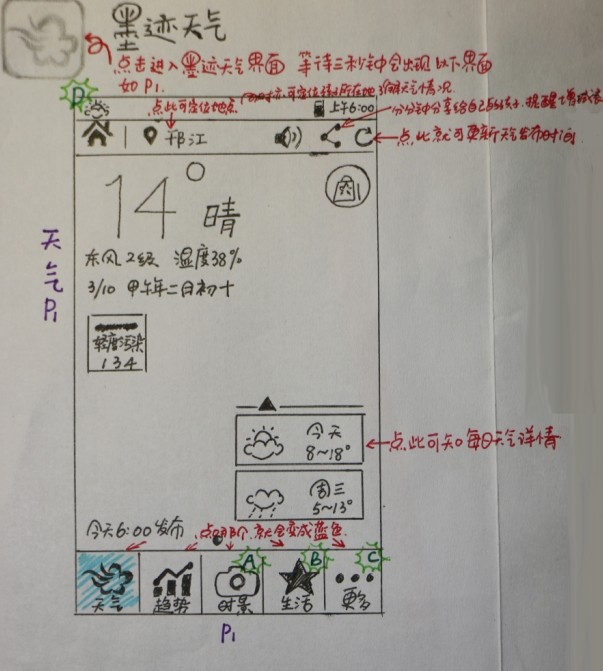 墨迹天气
点击进入墨迹天气界面 等待三秒钟会出现以下界面
如P1.
D
点此可定位地点
上午6:00
邗江
点此就可更新天气发布时间
14°
晴
东风2级 湿度38%
3/10 甲午年二月初十
轻度污染
134
天气
P1
今天
8~18°
点此可知每日天气详情
周三
5~13°
今天6:00发布
点哪个就会变成蓝色
A
B
C
天气
趋势
时景
生活
更多
P1